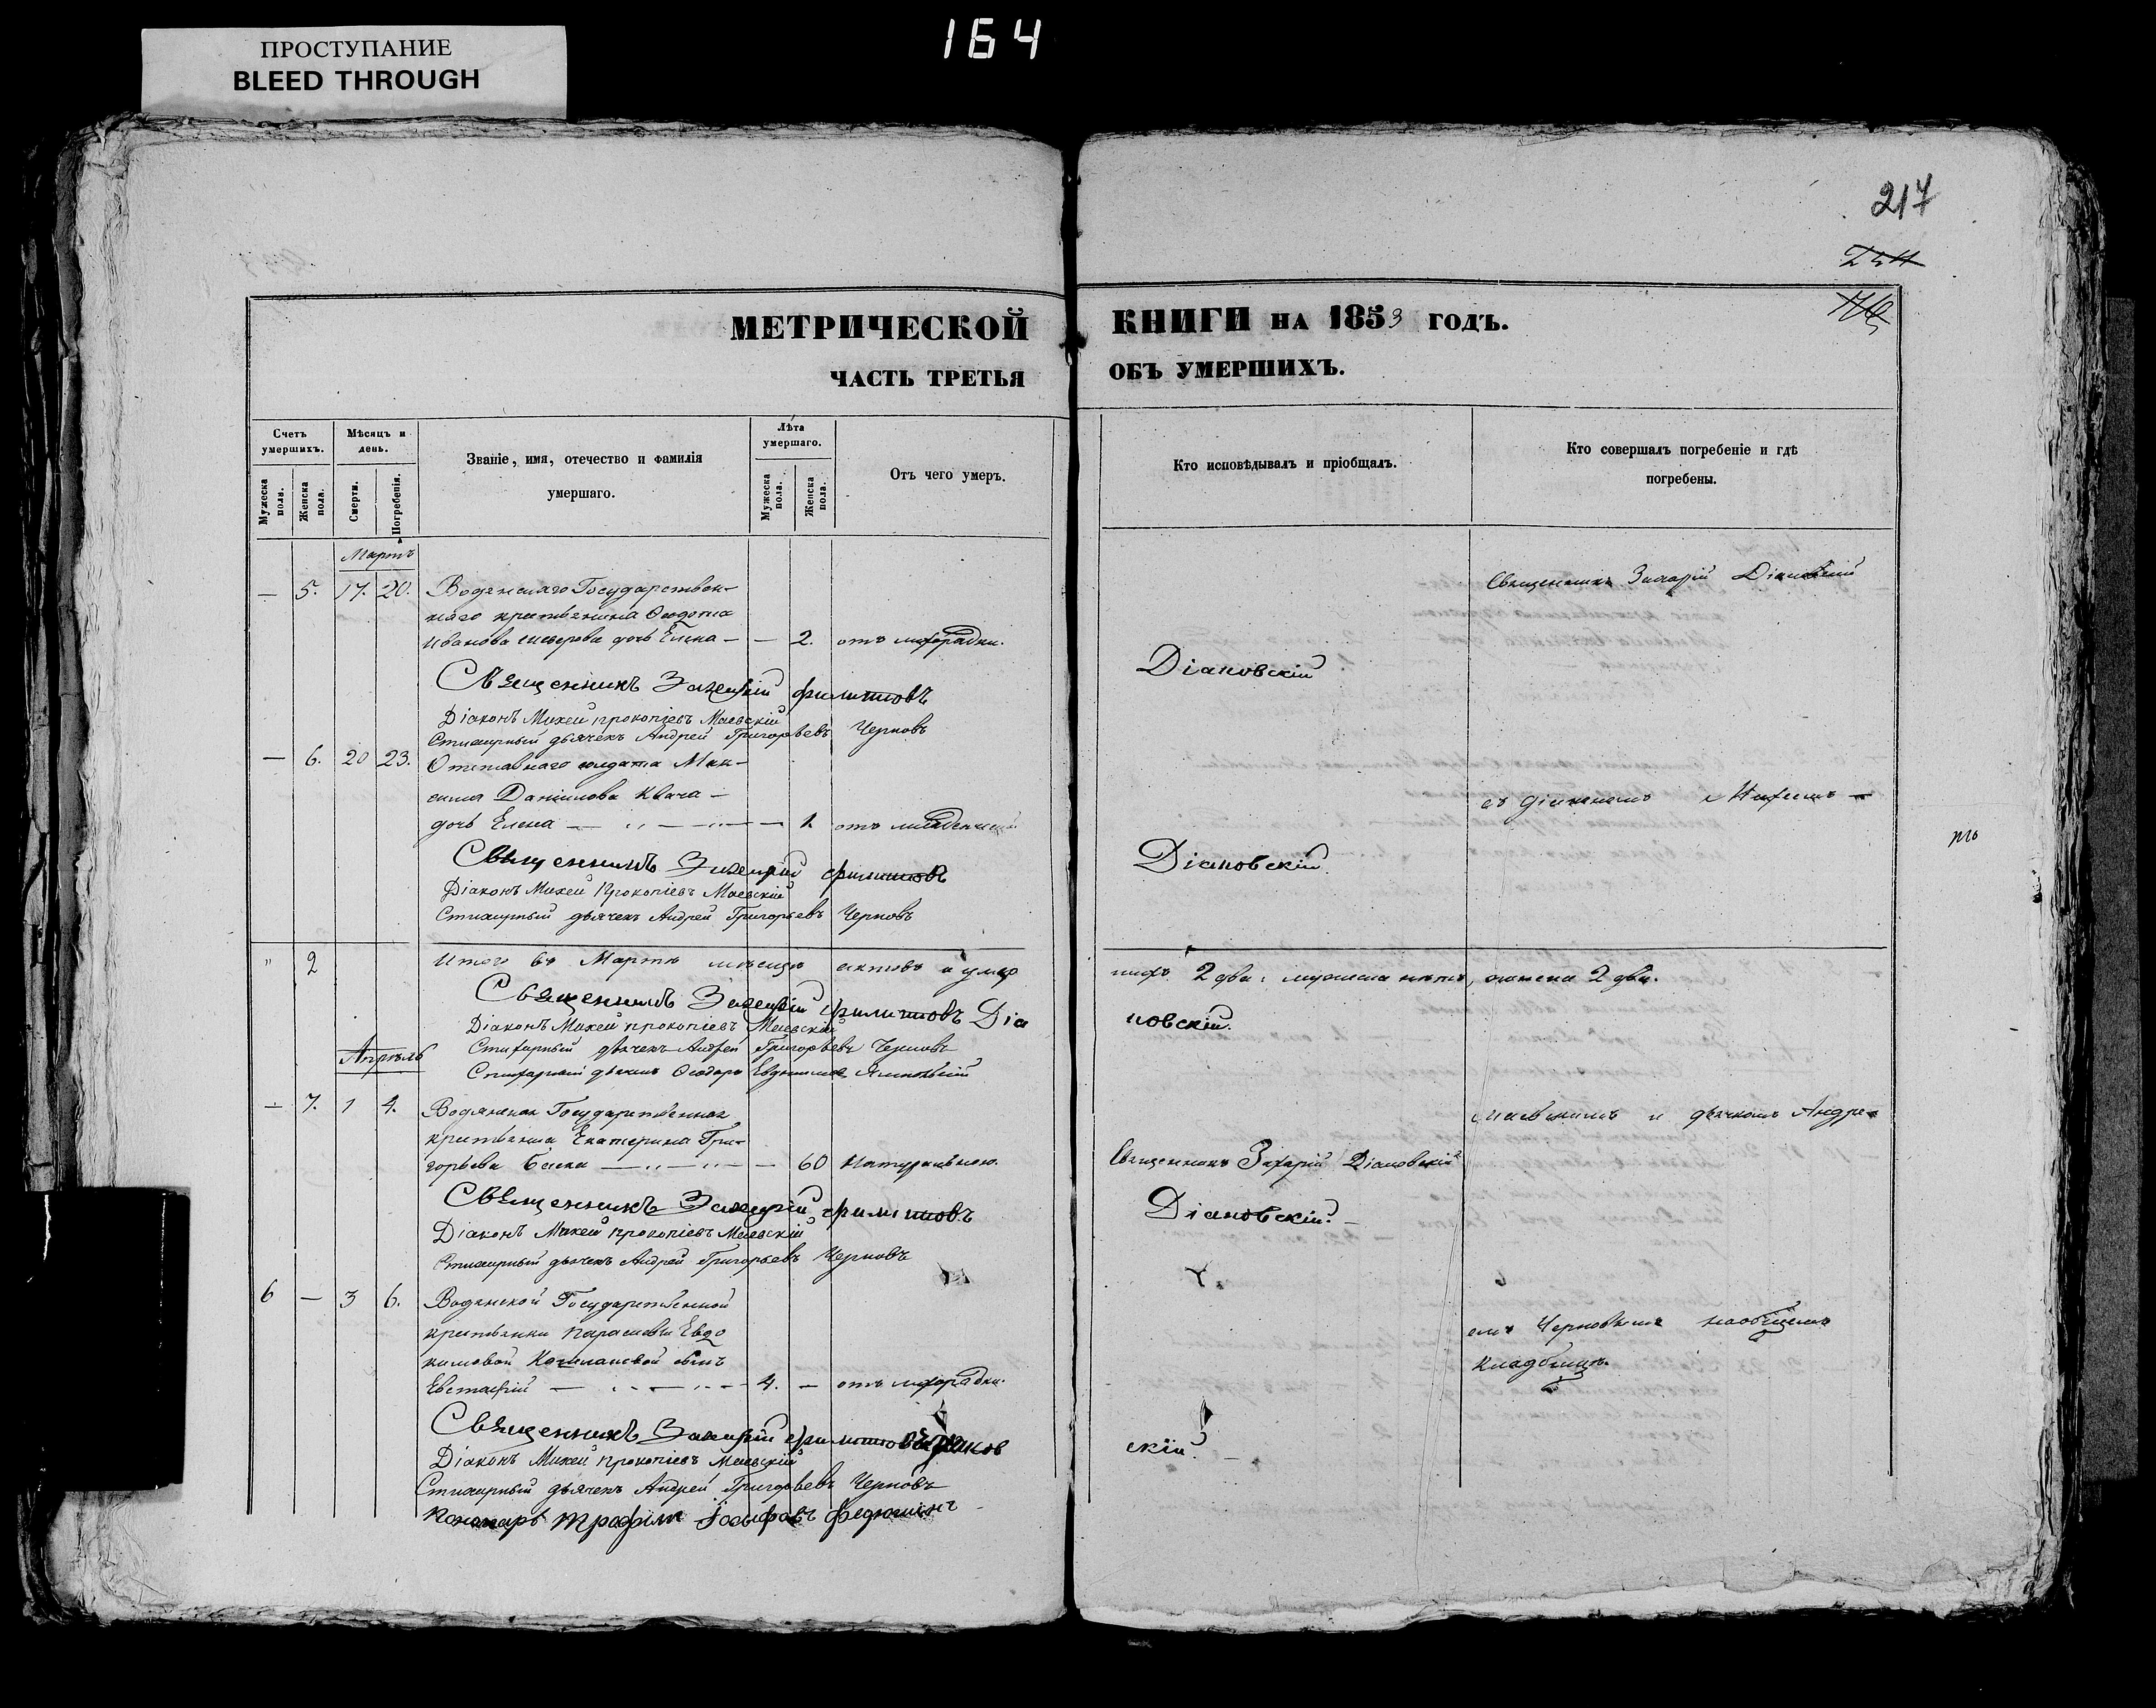 ПРОСТУПАНИЕ
BLEED THROUGH
164
217
МЕТРИЧЕСКОЙ
ЧАСТЬ ТРЕТЬЯ
Счетъ умершихъ.
Мѣсяцъ и день.
Званіе, имя, отечество и фамилія умершаго.
Лѣта умершаго.
Отъ чего умеръ.
Мужеска пола.
Женска пола.
Смерти.
Погребенія.
Мужеска пола.
Женска пола.
Мартъ
— 5. 17. 20. Водянскаго Государствен-
наго крестьянина Ѳеодота
Иванова дочь Елена — — 2. отъ лихорадки.
Священникъ Захарій Филиповъ
Діаконъ Михей Прокопіевъ Маевскій
Стихарный дьячекъ Андрей Григорьевъ Черновъ
— 6. 20 23. Отставнаго солдата Мак-
сима Даніилова Квача —
дочь Елена — — 1. отъ младенческ
Священникъ Захарій Филиповъ
Діаконъ Михей Прокопіевъ Маевскій
Стихарный дьячекъ Андрей Григорьевъ Черновъ
" 2 Итого въ Мартѣ мѣсяцѣ актовъ о умер
Священникъ Захарій Филиповъ Діа
Діаконъ Михей Прокопіевъ Маевскій
Стихарный дьячекъ Андрей Григорьевъ Черновъ
Стихарный дьячекъ Ѳеодоръ
Апрѣль
— 7. 1 4. Водянская Государственная
крестьянка Екатерина Гри-
горьева — — 60 Натуральною.
Священникъ Захарій Филиповъ
Діаконъ Михей Прокопіевъ Маевскій
Стихарный дьячекъ Андрей Григорьевъ Черновъ
6 — 3 6. Водянской Государственной
крестьянки Параскевы Евдо
кимовой сынъ
Евстафій — — 4. — отъ лихорадки.
Священникъ Захарій Филиповъ Діанов
Діаконъ Михей Прокопіевъ Маевскій
Стихарный дьячекъ Андрей Григорьевъ Черновъ
Понамарь Трофимъ Іосифовъ Федюшинъ
КНИГИ НА 1853 ГОДЪ.
ОБЪ УМЕРШИХЪ.
Кто исповѣдывалъ и пріобщалъ.
Кто совершалъ погребеніе и гдѣ погребены.
Священникъ Захарій Діановскій
Діановскій
съ діакономъ Михеемъ —
Діановскій
шихъ 2 два: мужеска нѣтъ, женска 2 два.
новскій.
Маевскимъ и дьячкомъ Андре-
Священникъ Захарій Діановскій
Діановскій. —
емъ Черновымъ на общемъ
кладбищѣ.
скій.